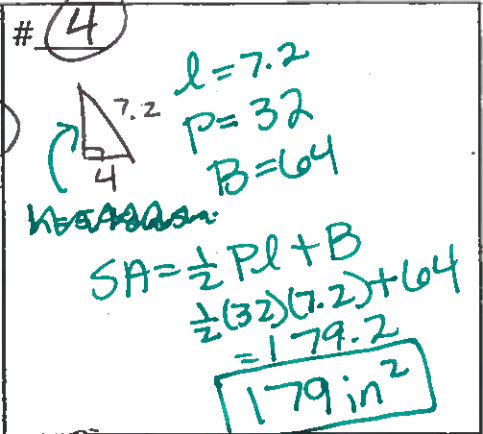 # 4
7.2
4
l = 7.2
P = 32
B = 64
SA = ½ Pl + B
½ (32)(7.2) + 64
= 179.2
179 in²